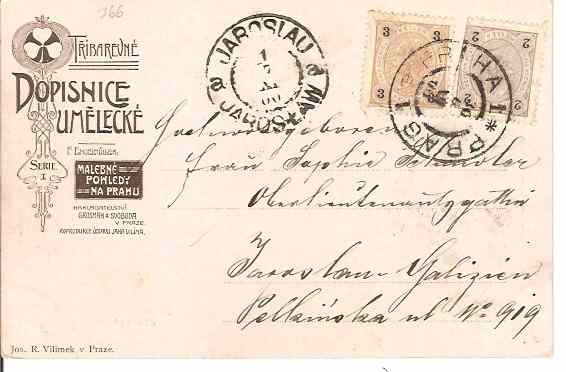 366
TŘÍBAREVNÉ
DOPISNICE
UMĚLECKÉ
SERIE
I.
MALEBNÉ
POHLEDY
NA PRAHU
NAKLADATELSTVÍ
GROSMAN & SVOBODA
V PRAZE.
JAROSLAU
JAROSŁAW
3 3
2 2
PRAG 1 PRAHA 1
Hochwohlgeboren
Frau Sophie
Oberlieutenantsgattin
Jaroslau - Galizien
Pełkińska ul No 919
Jos. R. Vilímek v Praze.